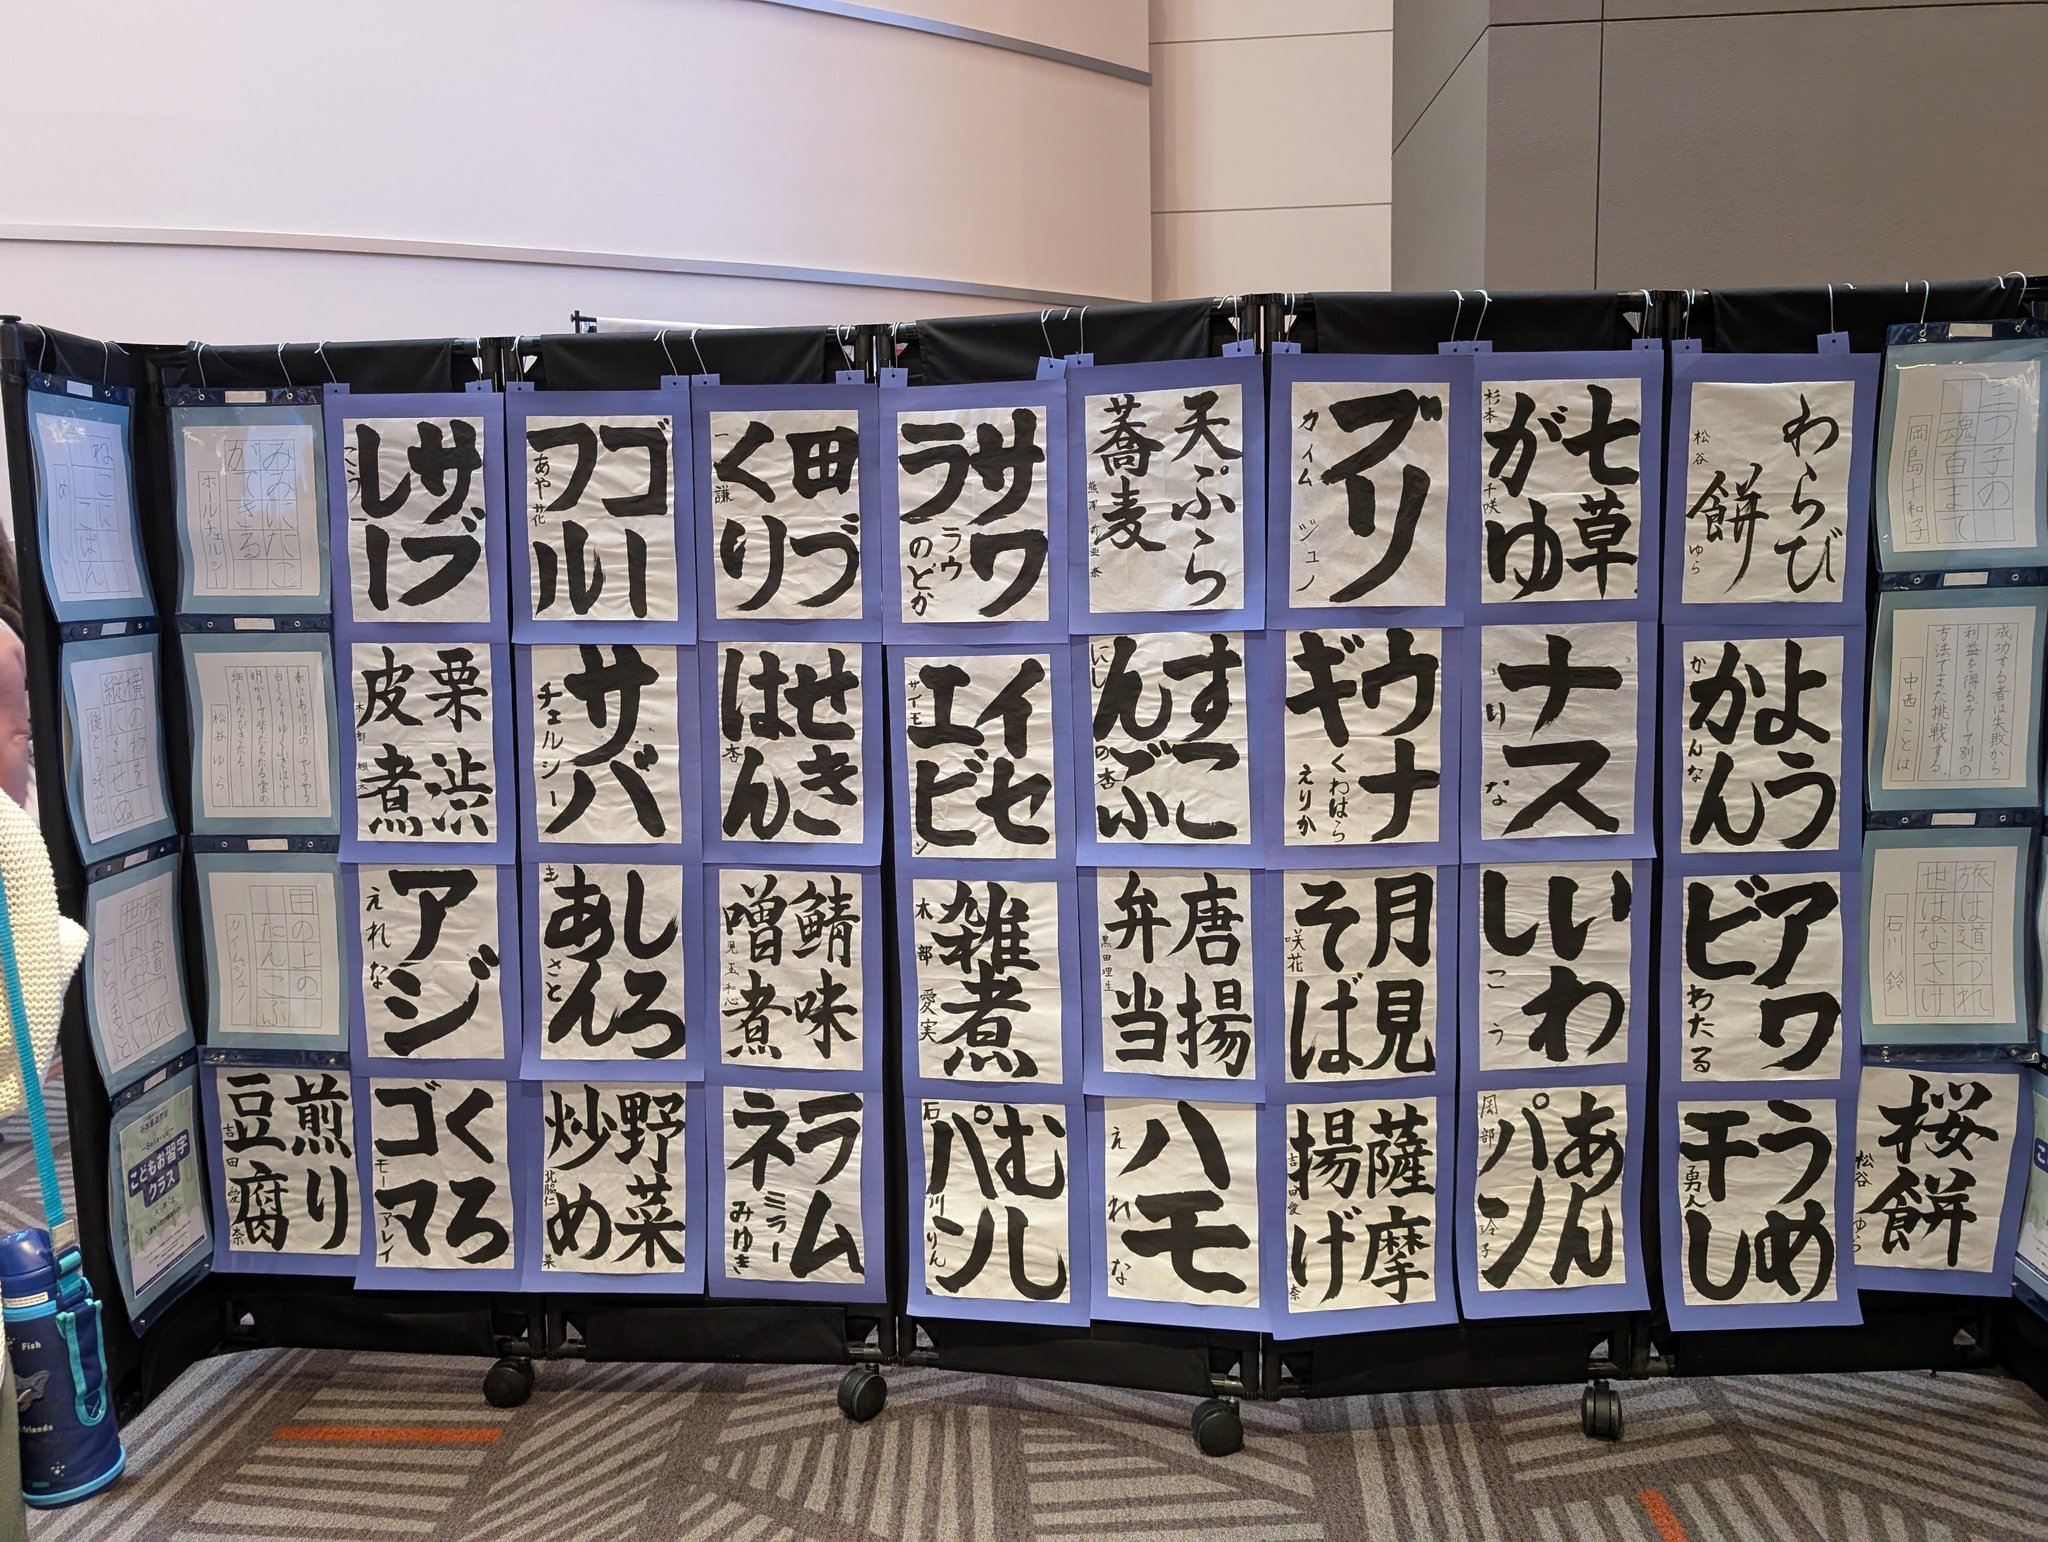 ねこにこばん
めい
横の物を
縦にもせぬ
後とう咲花
旅の道
世
こどもお習字
クラス
みみにたこ
ができる
ホルチェルシー
春はあけぼの やうやう
白くなりゆく山ぎは少し
明かりて紫だちたる雲の
細くたなびきたる
松谷 ゆら
目の上の
たんこぶ
カイムジュノ
煎り
豆腐
吉田 愛奈
サブ
レー
こうー
栗渋
皮煮
木部 楓太
アジ
えれな
くろ
ゴマ
モーアレイ
ゴー
フル
あや花
サバ
チェルシー
しろ
あん
まさと
野菜
炒め
北脇仁菜
田づ
くり
一謙
せき
はん
杏
鯖味
噌煮
児玉和心
ラム
ネ
ミラー
みゆき
サワ
ラ
ラウ
のどか
イセ
エビ
サイモン
雑煮
木部 愛実
むし
パン
石川りん
天ぷら
蕎麦
熊澤 莉亜奈
すこ
んぶ
にしの杏
唐揚
弁当
黒田理生
ハモ
えれな
ブリ
カイム ジュノ
ウナ
ギ
くわはら
えりか
月見
そば
咲花
薩摩
揚げ
吉田愛奈
七草
がゆ
杉本 千咲
ナス
りな
いわ
し
こう
あん
パン
岡部 玲子
わらび
餅
松谷 ゆら
よう
かん
かんな
アワ
ビ
わたる
うめ
干し
勇人
三つ子の
魂百まで
岡島十和子
成功する者は失敗から
利益を得る。そして別の
方法でまた挑戦する。
中西 ことは
旅は道づれ
世はなさけ
石川 鈴
桜
餅
松谷 ゆら
Fish
friends